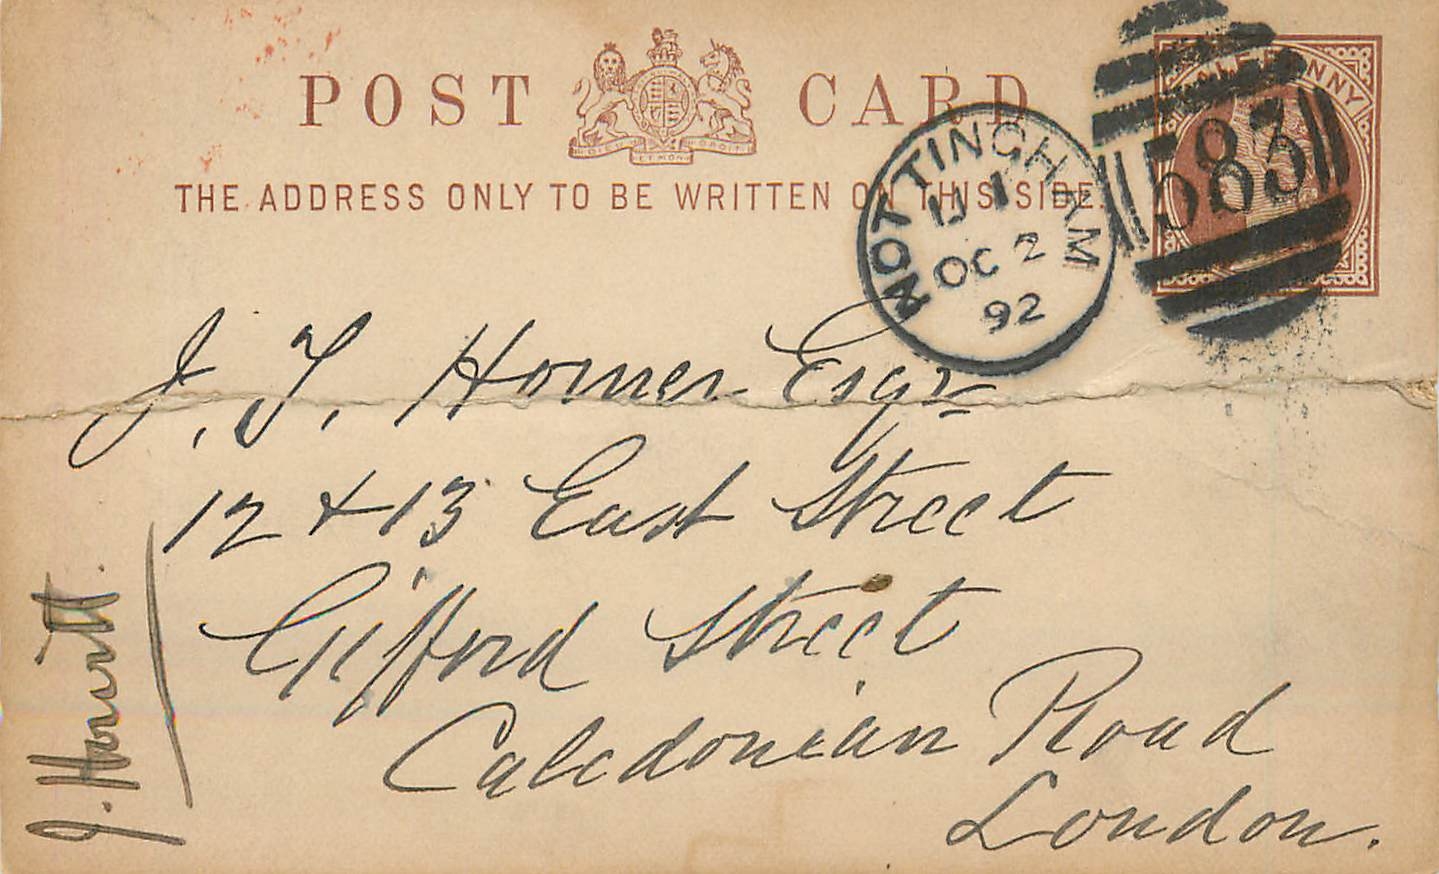 POST CARD
DIEU ET MON DROIT
THE ADDRESS ONLY TO BE WRITTEN ON THIS SIDE.
HALF PENNY
583
NOTTINGHAM
OC 2
92
J. T. Homer Esqr
12 + 13 East Street
Gifford Street
Caledonian Road
London.
J. Howitt.